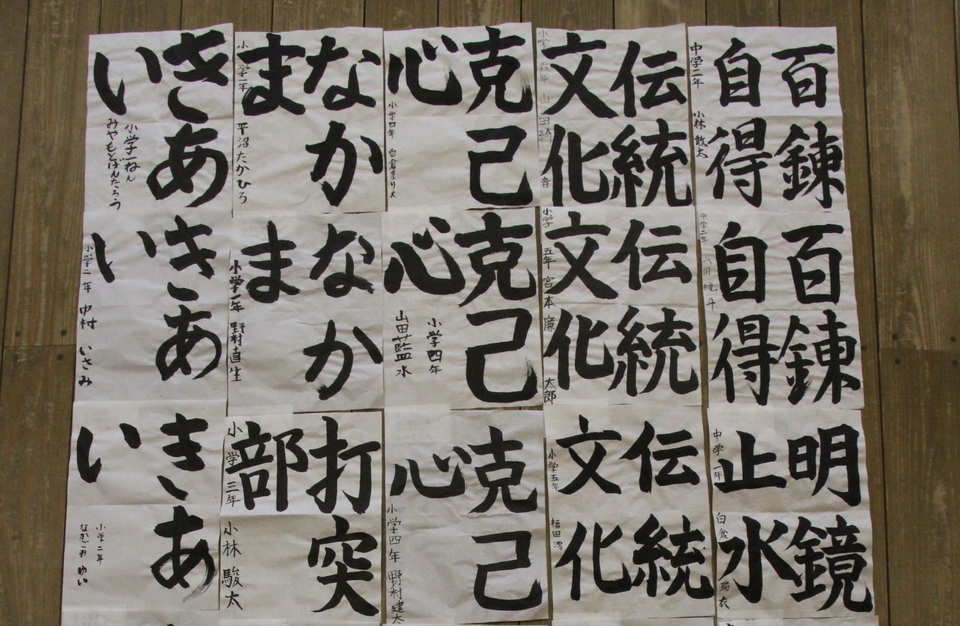 百錬
自得
中学二年 小林
伝統
文化
小学
克己
心
小学四年
なか
ま
小学一年 平沼たかひろ
きあ
い
小学一ねん
みやもとばんたろう
百錬
自得
中学二年
伝統
文化
小学五年 宮本 太郎
克己
心
小学四年
山田藍水
なか
ま
小学一年 野村直生
きあ
い
小学一年 中村 いさみ
明鏡
止水
中学一年 白倉
伝統
文化
小学五年
克己
心
小学四年 野村建太
打突
部
小学三年 小林駿太
きあ
い
小学二年
ながごみ ゆい